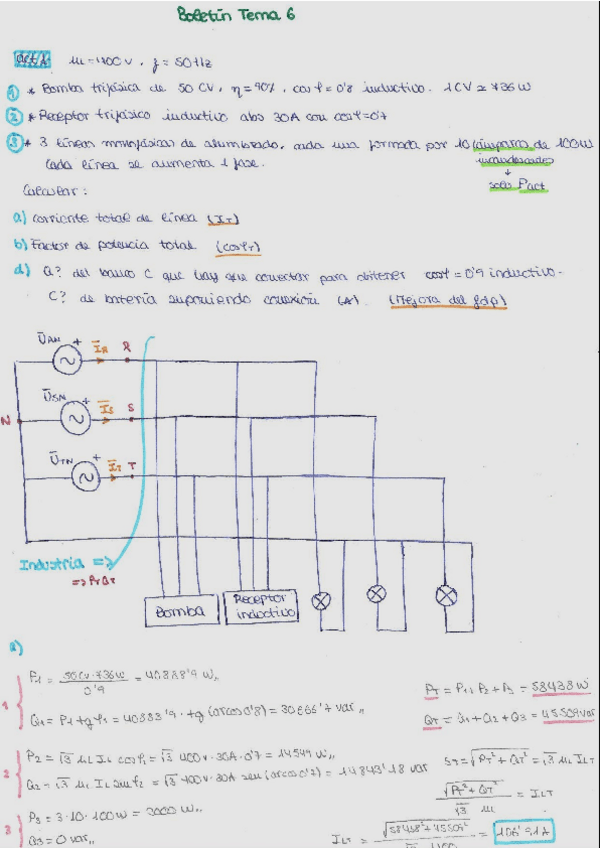 Boletín Tema 6
Act 1. U=400V, f=50Hz
① * Bomba trifásica de 50 CV, η=90%, cosφ=0'8 inductivo. 1CV≈736W
② * Receptor trifásico inductivo abs 30A con cosφ=0'7
③ * 3 líneas monofásicas de alumbrado, cada una formada por 10 lámparas de 100W
incandescentes
Cada línea se aumenta 1 fase.
↓
solo Pact
Calcular:
a) corriente total de línea (IT)
b) Factor de potencia total (cosφT)
d) Q? del banco C que hay que conectar para obtener cosφ=0'9 inductivo.
C? de batería suponiendo conexión (Δ). (Mejora del fdp)
UAN + IR R
N USN + IS S
UTN + IT T
Industria =>
=> PT QT
Bomba
Receptor inductivo
a)
1
P1 = 50CV·736W / 0'9 = 40888'9 W,,
Q1 = P1·tgφ1 = 40883'9 · tg(arcos0'8) = 30666'7 var,,
PT = P1+P2+P3 = 58438W
QT = Q1+Q2+Q3 = 45509var
2
P2 = √3 UL IL cosφ2 = √3 400V·30A·0'7 = 14549 W,,
Q2 = √3 UL IL senφ2 = √3 400V·30A sen(arcos0'7) = 14843'18 var
ST = √PT²+QT² = √3 UL ILT
√PT²+QT² / √3 UL = ILT
3
P3 = 3·10·100W = 3000 W,,
Q3 = 0 var,,
ILT = √58438²+45509² / √3 · 400 = 106'91A